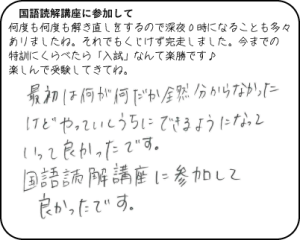 国語読解講座に参加して
何度も何度も解き直しをするので深夜0時になることも多々
ありましたね。それでもくじけず完走しました。今までの
特訓にくらべたら「入試」なんて楽勝です♪
楽しんで受験してきてね。
最初は何が何だか全然分からなかった
けどやっていくうちにできるようになって
いって良かったです。
国語読解講座に参加して
良かったです。